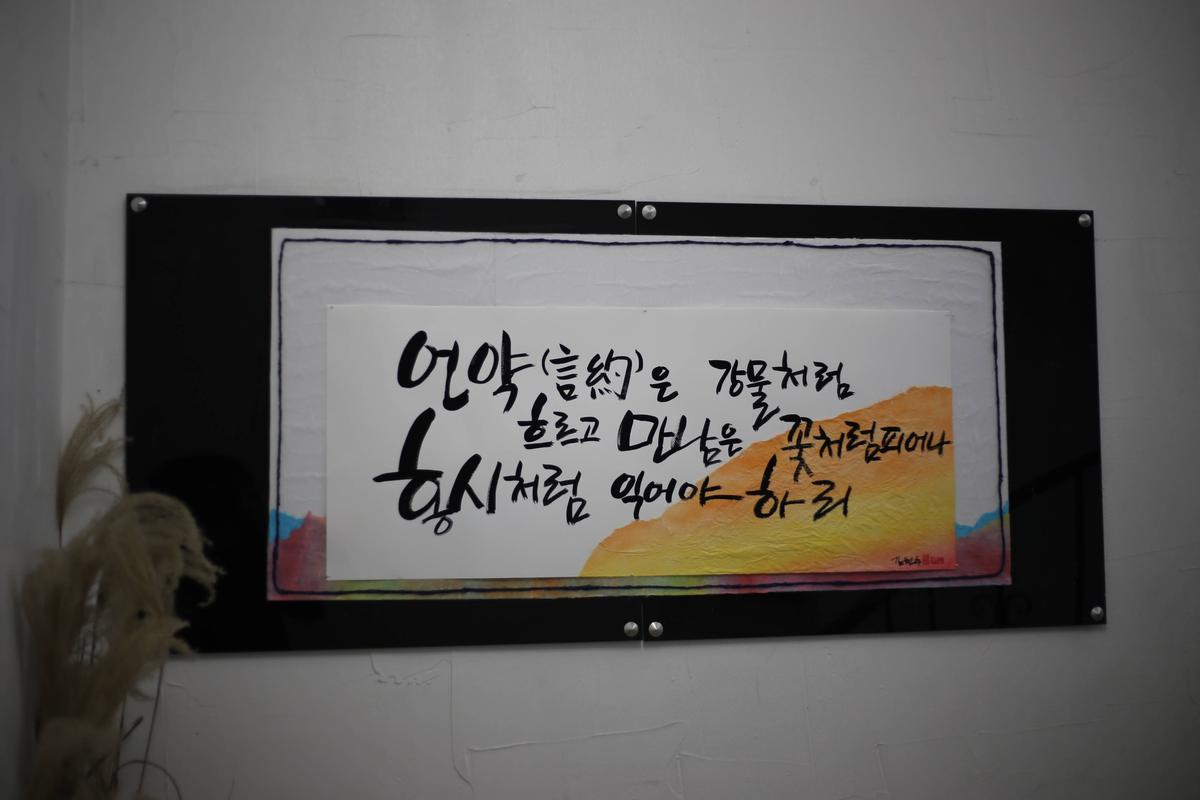 언약(言約)은 강물처럼
흐르고 만남은 꽃처럼피어나
황시처럼 익어야 하리